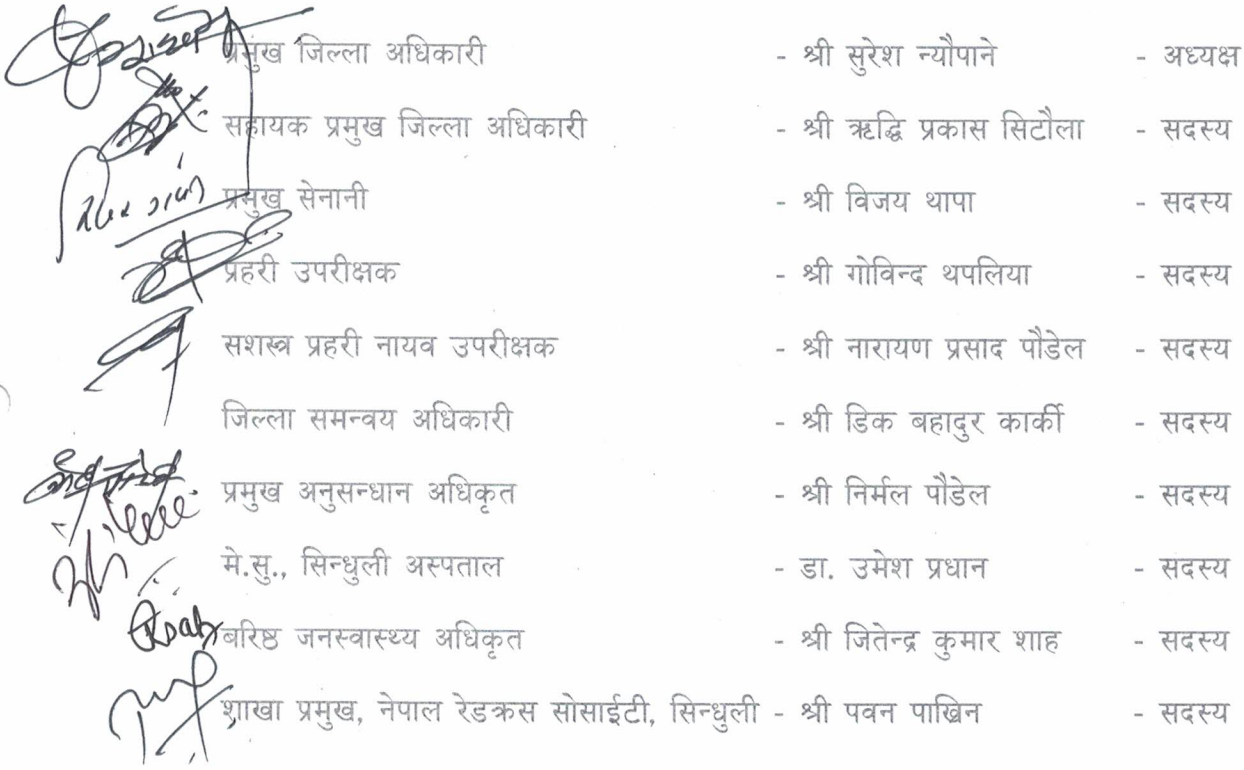 प्रमुख जिल्ला अधिकारी - श्री सुरेश न्यौपाने - अध्यक्ष
सहायक प्रमुख जिल्ला अधिकारी - श्री ऋद्धि प्रकास सिटौला - सदस्य
प्रमुख सेनानी - श्री विजय थापा - सदस्य
प्रहरी उपरीक्षक - श्री गोविन्द थपलिया - सदस्य
सशस्त्र प्रहरी नायव उपरीक्षक - श्री नारायण प्रसाद पौडेल - सदस्य
जिल्ला समन्वय अधिकारी - श्री डिक बहादुर कार्की - सदस्य
प्रमुख अनुसन्धान अधिकृत - श्री निर्मल पौडेल - सदस्य
मे.सु., सिन्धुली अस्पताल - डा. उमेश प्रधान - सदस्य
बरिष्ठ जनस्वास्थ्य अधिकृत - श्री जितेन्द्र कुमार शाह - सदस्य
शाखा प्रमुख, नेपाल रेडक्रस सोसाईटी, सिन्धुली - श्री पवन पाख्रिन - सदस्य